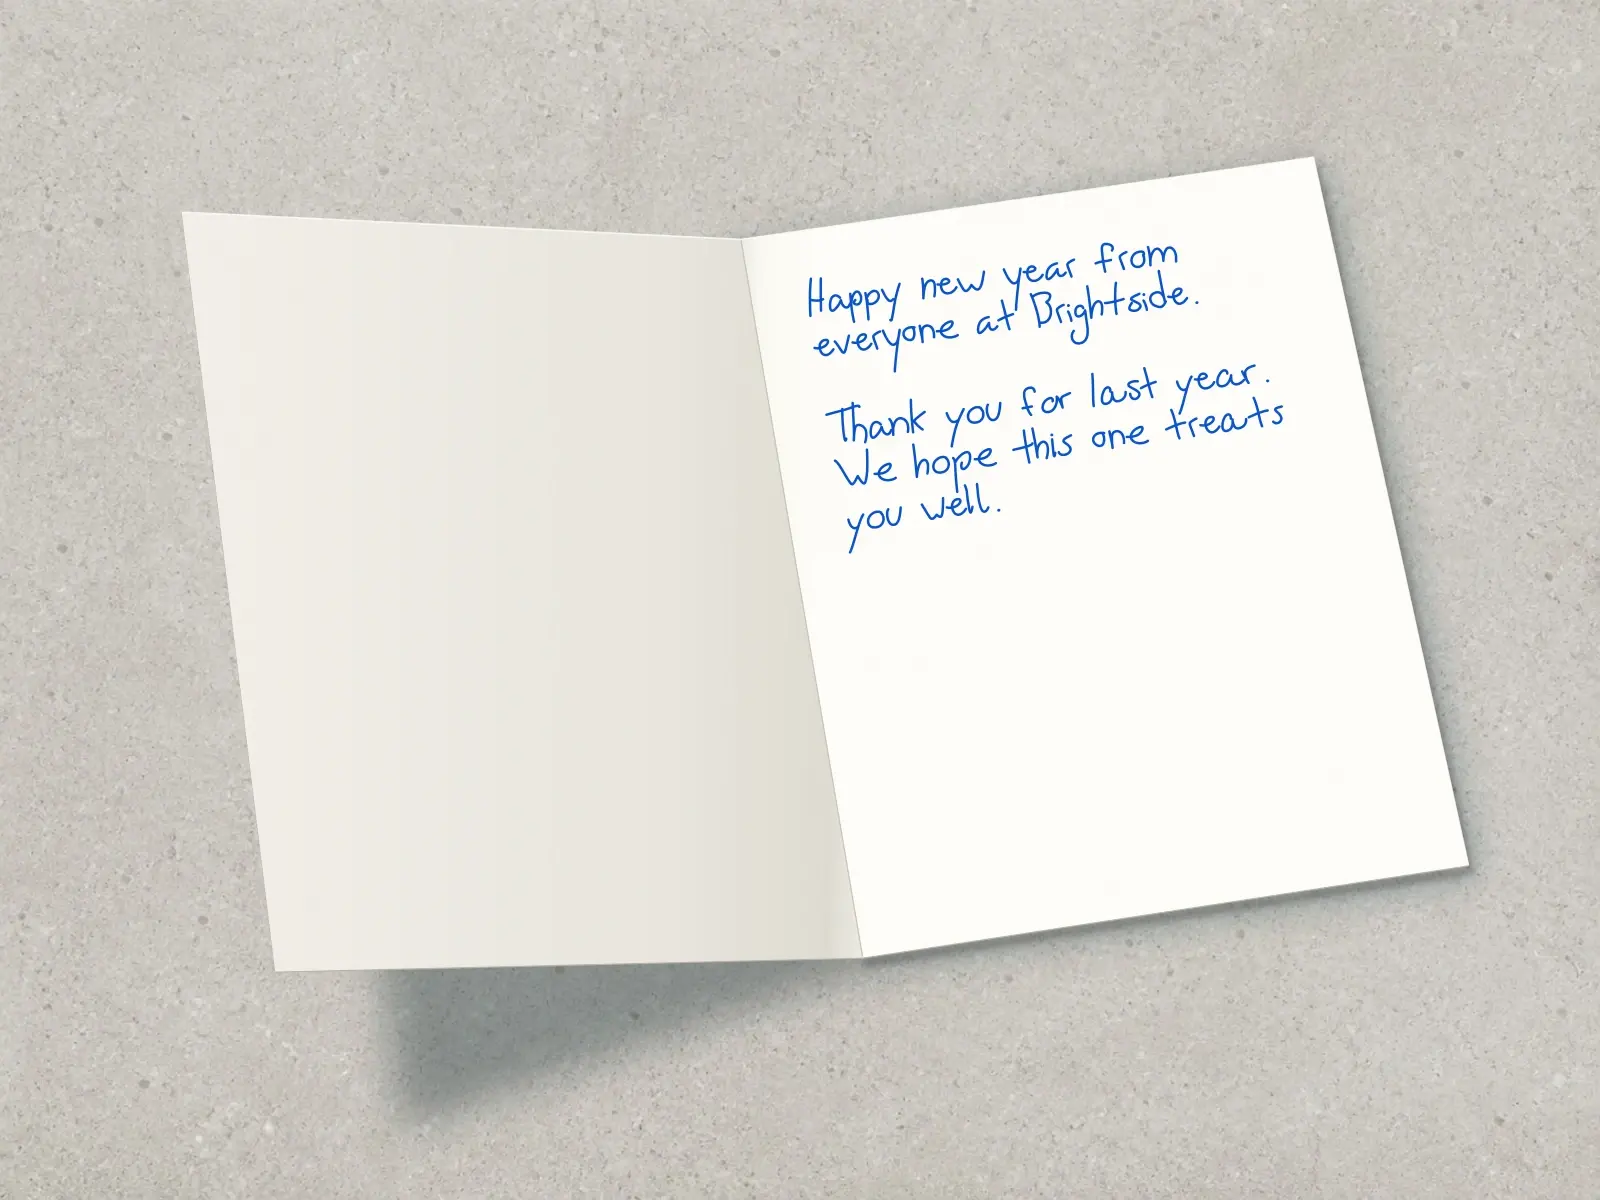 Happy new year from
everyone at Brightside.
Thank you for last year.
We hope this one treats
you well.